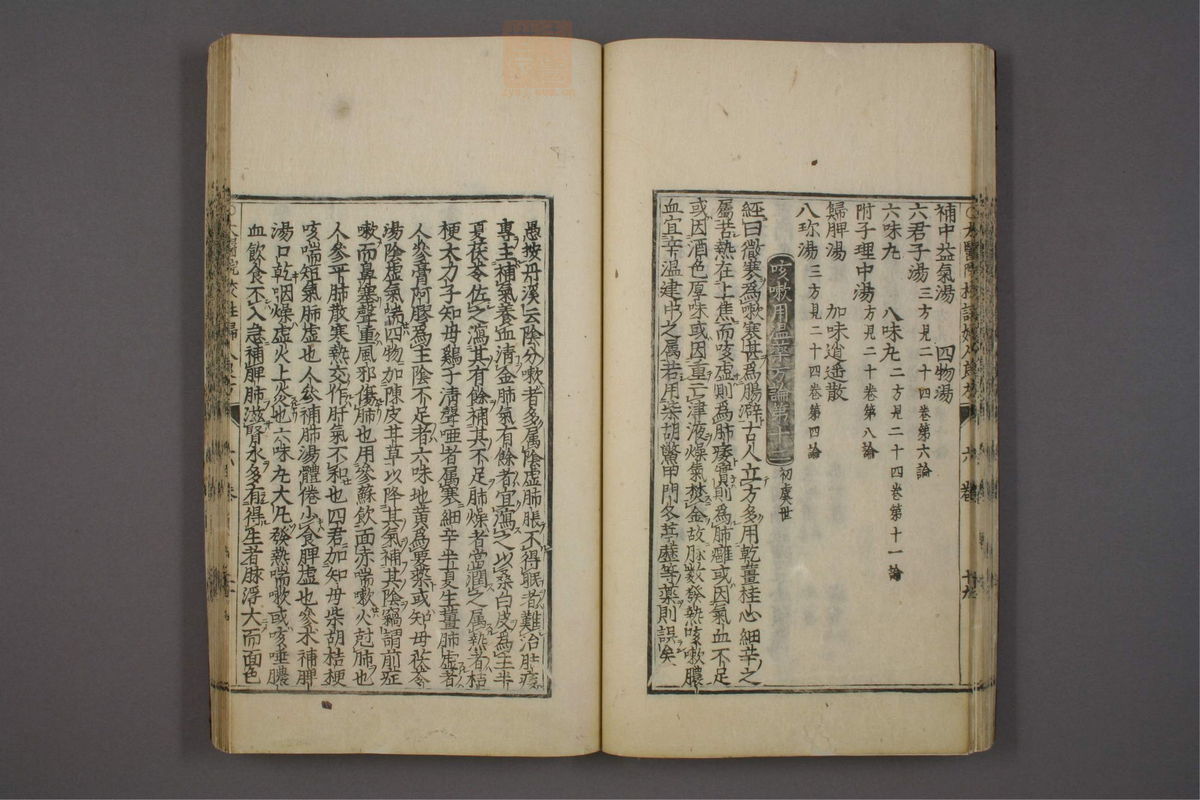 補中益氣湯　四物湯
六君子湯三方見二十四卷第六論
六味丸　八味丸二方見二十四卷第十一論
附子理中湯方見二十卷第八論
歸脾湯　加味逍遙散
八珎湯三方見二十四卷第四論
咳嗽用温藥方論第十二 初虞世
經曰微寒為嗽寒甚為腸澼古人立方多用乾薑桂心細辛之
属若熱在上焦而咳虛則為肺痿實則為肺癰或因氣血不足
或因酒色厚味或因重亡津液燥氣焚金故脉数發熱咳嗽膿
血宜辛温建中之属若用柴胡鱉甲門冬葶藶等藥則誤矣
愚按丹溪云陰分嗽者多属陰虛肺脹不得眠者難治肚痿
專主補氣養血清金肺氣有餘者宜瀉之以桑白皮為主半
夏茯苓佐之瀉其有餘補其不足肺燥者當潤之属熱者桔
梗大力子知母鷄子清聲啞者属寒細辛半夏生薑肺虛者
人參膏阿膠為主陰不足者六味地黄為要藥或知母茯苓
湯陰虛氣喘四物加陳皮甘草以降其氣補其陰竊謂前症
嗽而鼻塞聲重風邪傷肺也用參蘇飲面赤喘嗽火尅肺也
人參平肺散寒熱交作肝氣不和也四君加知母柴胡桔梗
咳喘短氣肺虛也人參補肺湯體倦少食脾虛也參朮補脾
湯口乾咽燥虛火上炎也六味丸大凡發熱喘嗽或咳唾膿
血飲食不入急補脾肺滋腎水多有得生者脉浮大而面色
六卷